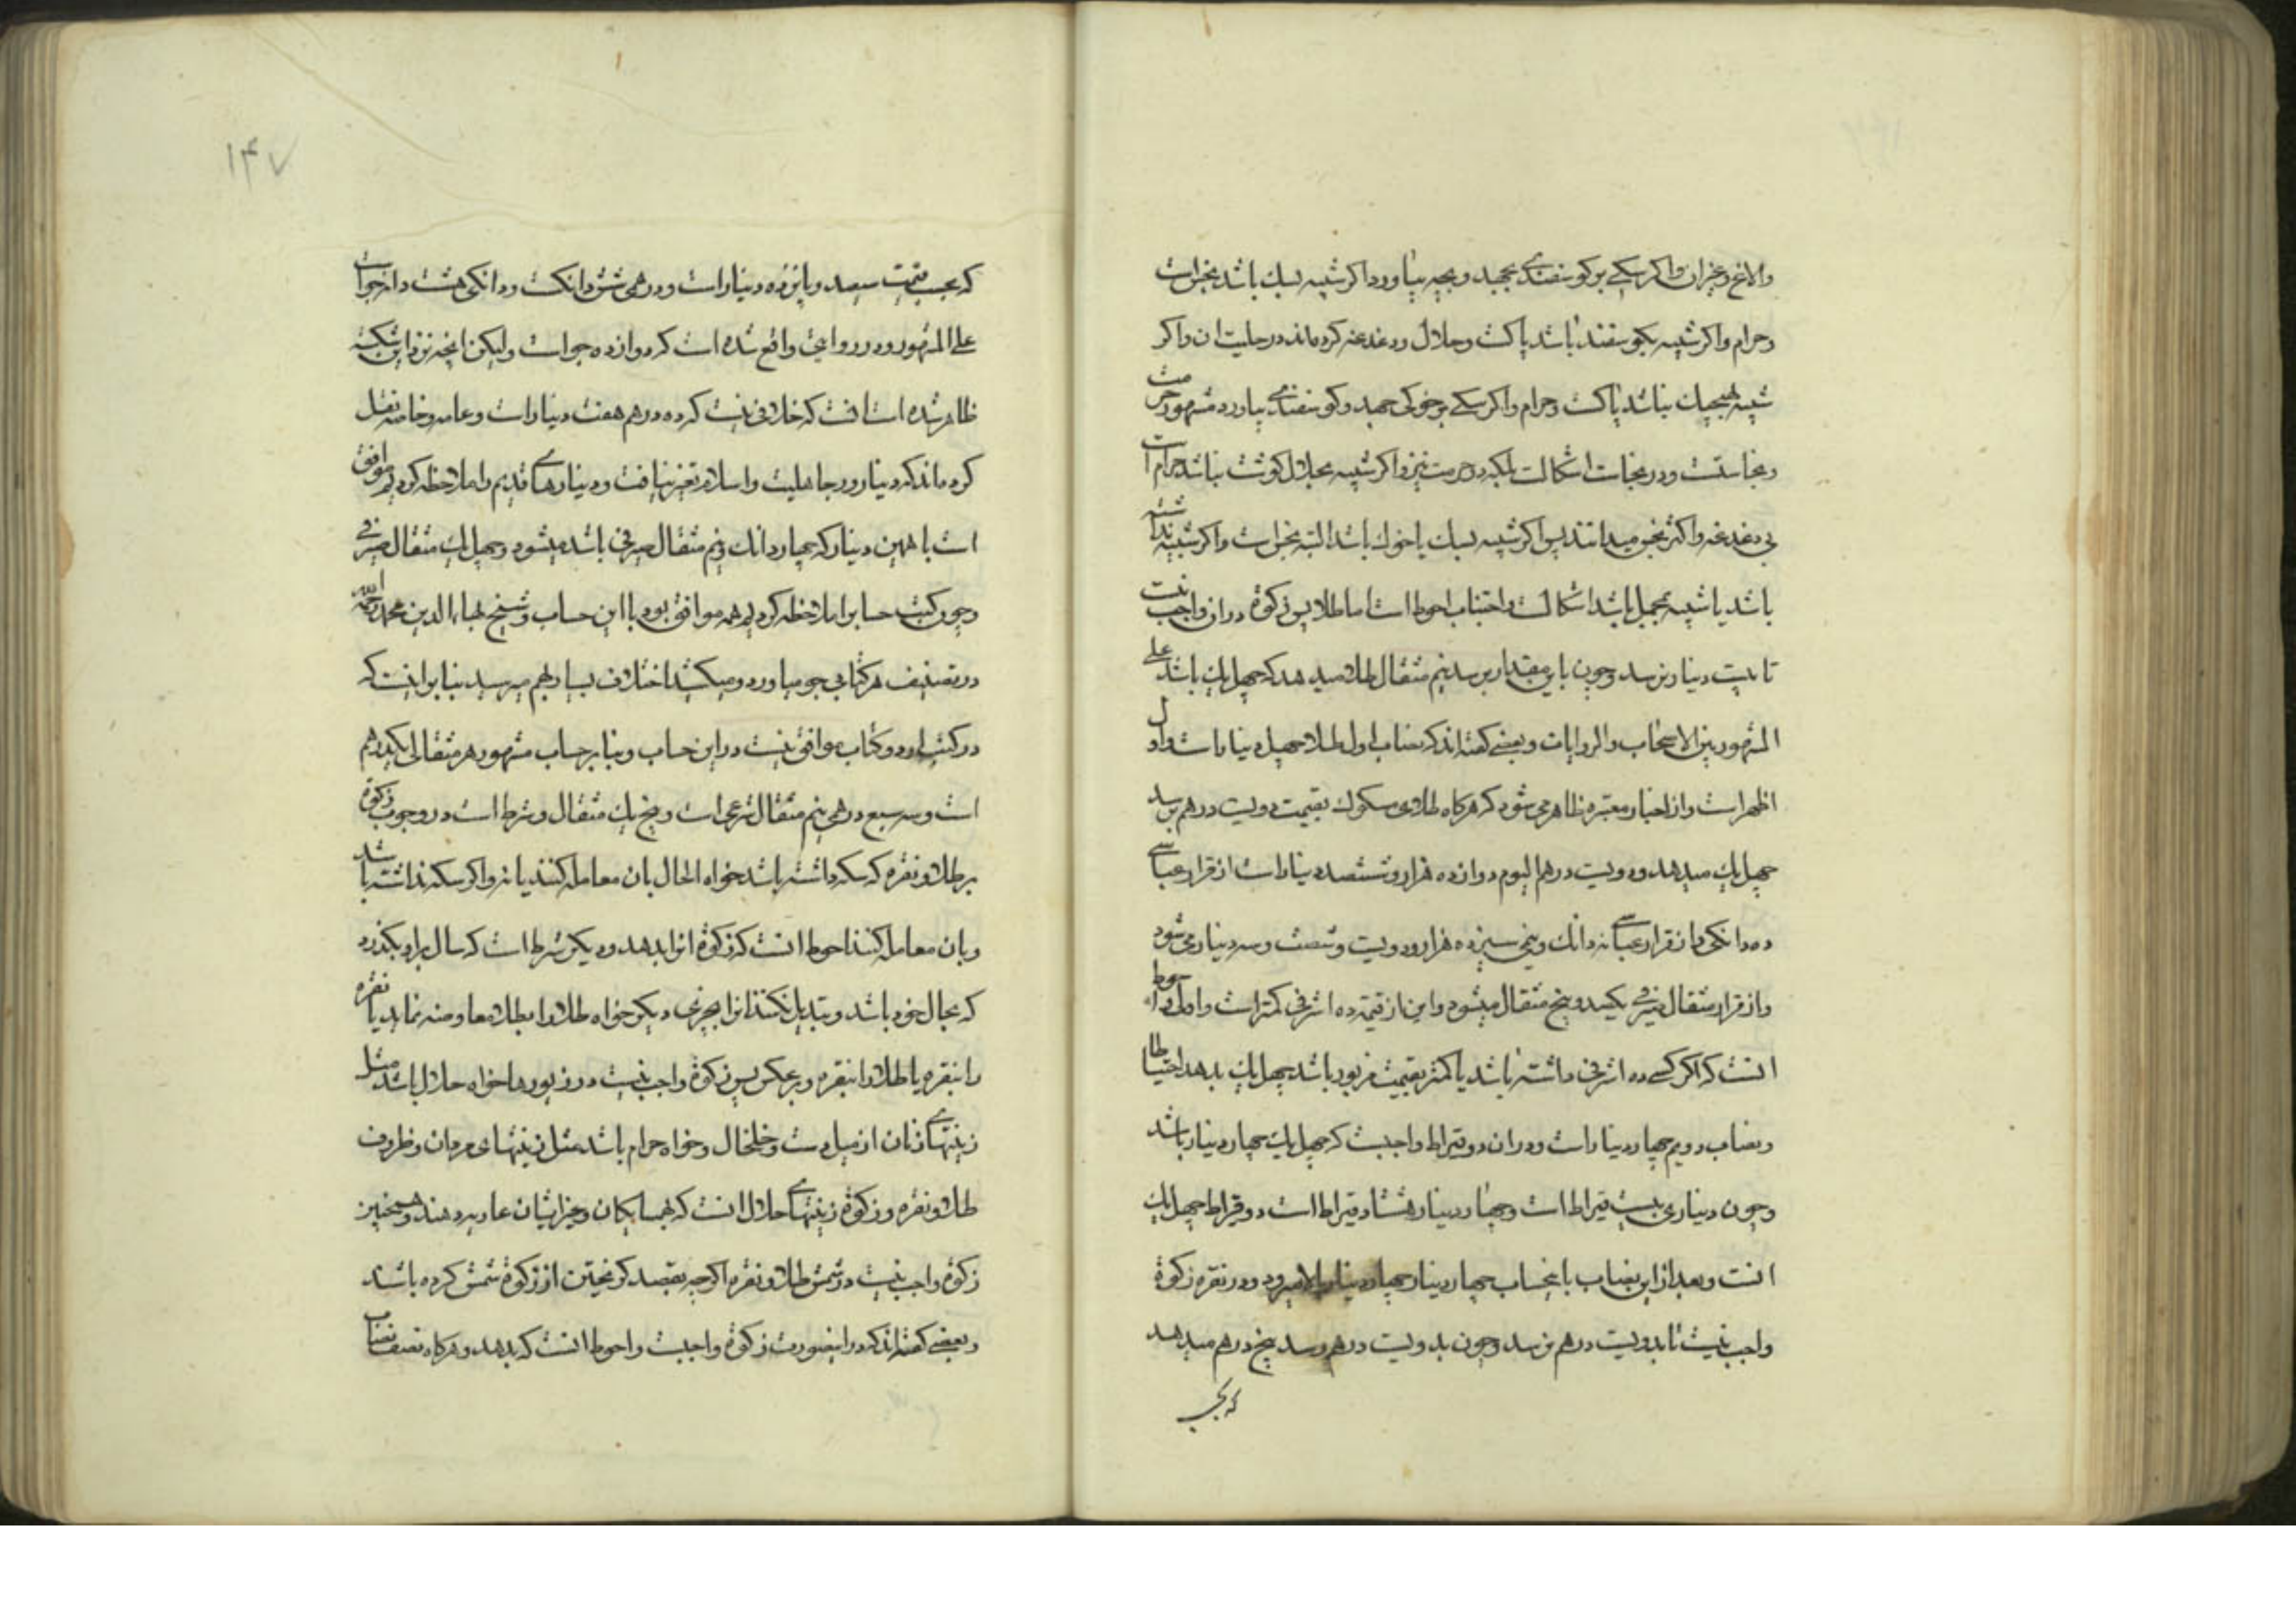 والاغ و غیر ان واکر سکی بر کوسفندی بجهد و بچه بیاورد اکر شبیه بسك باشد نجس است
وحرام واکر شبیه بکوسفند باشد پاکست وحلال ودغدغه کرده‌اند در حلیت ان واکر
شبیه بهیچیك نباشد پاکست وحرام واکر سکی بر خوکی جهد وکوسفندی بیاورد مشهور حرمت
ونجاستست ودر نجاست اشکالست بلکه در حرمت نیز واکر شبیه بحلال کوشت نباشد حرام است
بی دغدغه واکثر نجس میدانند پس اکر شبیه بسك یا خوك باشد البته نجس است واکر شبیه نداشته
باشد یا شبیه بجمیل باشد اشکالست واجتناب احوط است اما طلا پس زکوة در ان واجب نیست
تا بیست دینار نرسد وچون باین مقدار برسد نیم مثقال طلا میدهد که چهل یك باشد علی
المشهور بین الاصحاب والروایات وبعضی کفته‌اند که نصاب اول طلا چهل دینار است واول
اظهر است واز اخبار معتبره ظاهر می‌شود که هرکاه طلای مسکوك بقیمت دویست درهم برسد
چهل یك میدهد ودویست درهم الیوم دوازده هزار وششصد دینار است از قرار عباسی
ده دانکی واز قرار عباسی نه دانك ونیمی سیزده هزار ودویست وشصت وسه دینار می‌شود
واز قرار مثقال صیرفی یکصد وپنج مثقال میشود واین از قیمت ده اشرفی کمتر است واولی واحوط
انست که اکر کسی ده اشرفی داشته باشد یا کمتر بقیمت مزبور باشد چهل یك بدهد احتیاطا
ونصاب دویم چهار دینار است ودران دو قیراط واجبست که چهل یك چهار دینار باشد
وچون دیناری بیست قیراط است وچهار دینار هشتاد قیراط است دو قیراط چهل یك
انست وبعد از این نصاب باینحساب چهار دینار چهار دینار بالا میرود ودر نقره زکوة
واجب نیست تا بدویست درهم نرسد وچون بدویست درهم رسد پنج درهم میدهد
که بحسب
۱۴۷
که بحسب قیمت سیصد وپانزده دینار است ودرهمی شش دانکست ودانکی هشت دانه جواست
علی المشهور ودر روایتی واقع شده است که دوازده جو است ولیکن انچه نزد این شکسته
ظاهر شده است انست که خلافی نیست که ده درهم هفت دینار است وعامه وخاصه نقل
کرده‌اند که دینار در جاهلیت واسلام تغیر نیافت ودینارهای قدیم را ملاحظه کردیم موافق
است با همین دینار که چهار دانك ونیم مثقال صیرفی باشد میشود وچهل یك مثقال صیرفی
وچون کتب حساب را ملاحظه کردیم همه موافق بود با این حساب وشیخ بهاء الدین محمد رحمه الله
در تصنیف هر کتابی جو میاورد ومیکشید اختلاف بسیار بهم میرسید بنابر اینست که
در کتب او دو کتاب موافق نیست در این حساب وبنابر حساب مشهور هر مثقالی یکدرهم
است وسه سبع درهمی نیم مثقال شرعی است وپنج یك مثقال وشرط است در وجوب زکوة
بر طلا ونقره که سکه داشته باشد خواه الحال بان معامله کنند یا نه واکر سکه نداشته باشد
وبان معامله کنند احوط انست که زکوة انرا بدهد ودیکر شرط است که سال براو بکذرد
که بحال خود باشد وتبدیل نکنند انرا بچیزی دیکر خواه طلا را بطلا معاوضه نماید یا نقره
را بنقره یا طلا را بنقره وبرعکس پس زکوة واجب نیست در زیورها خواه حلال باشد مثل
زینتهای زنان از میل دست وخلخال وخواه حرام باشد مثل زینتهای مردان وظروف
طلا ونقره وزکوة زینتهای حلال انست که بهمسایکان وغیر ایشان عاریه دهند وهمچنین
زکوة واجب نیست در شمش طلا ونقره اکرچه بقصد کریختن از زکوة شمش کرده باشند
وبعضی کفته‌اند که در اینصورت زکوة واجبست واحوط انست که بدهد وهرکاه نصف نصاب